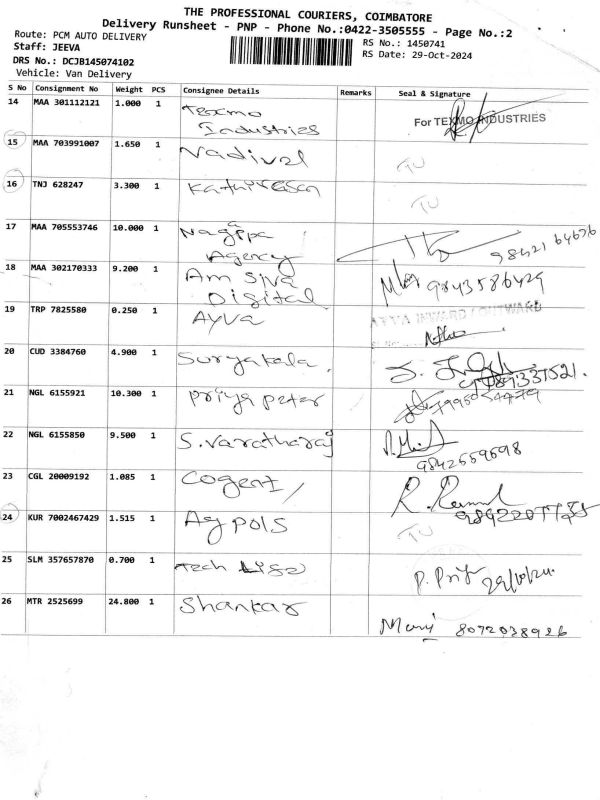 THE PROFESSIONAL COURIERS, COIMBATORE
Delivery Runsheet - PNP - Phone No.:0422-3505555 - Page No.:2
Route: PCM AUTO DELIVERY
RS No.: 1450741
Staff: JEEVA
RS Date: 29-Oct-2024
DRS No.: DCJB145074102
Vehicle: Van Delivery
S No Consignment No Weight PCS Consignee Details Remarks Seal & Signature
14 MAA 301112121 1.000 1 Texmo
Industries
For TEXMO INDUSTRIES
15 MAA 703991007 1.650 1 Vadivel TU
16 TNJ 628247 3.300 1 Kathiresan
TU
17 MAA 705553746 10.000 1 Nagappa
Agency
98421 64676
18 MAA 302170333 9.200 1 Am Siva
Digital
9843586429
19 TRP 7825580 0.250 1 Ayva
INWARD / OUTWARD
20 CUD 3384760 4.900 1 Suryakala.
21 NGL 6155921 10.300 1 Priya peter
22 NGL 6155850 9.500 1 S.Varatharaj
9842559698
23 CGL 20009192 1.085 1 Cogent/
24 KUR 7002467429 1.515 1 Ag pols TU
25 SLM 357657870 0.700 1 Tech
29/10/24.
26 MTR 2525699 24.800 1 Shankar
Mani 8072038926